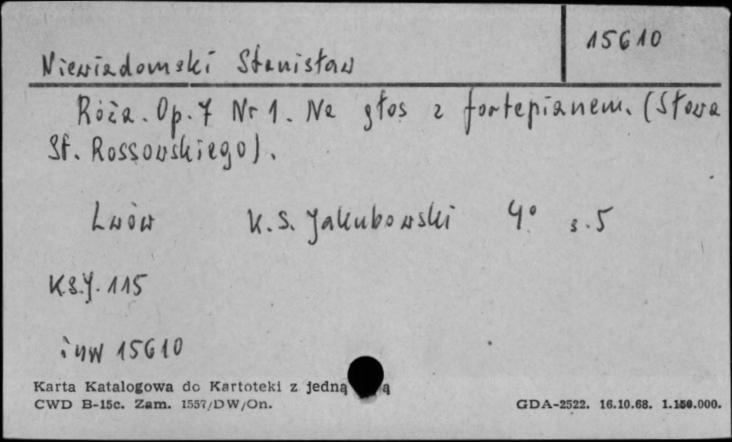 15610
Niewiadomski Stanisław
Róża. Op. 7 Nr 1. Na głos z fortepianem. (Słowa
St. Rossowskiego).
Lwów K. S. Jakubowski 4° s. 5
K.S.J. 115
inw 15610
Karta Katalogowa do Kartoteki z jedną
CWD B-15c. Zam. 1557/DW/On.
GDA-2522. 16.10.68. 1.150.000.